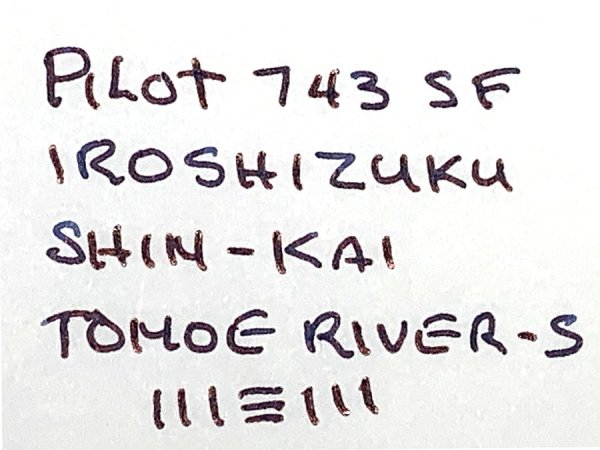 PILOT 743 SF
IROSHIZUKU
SHIN-KAI
TOMOE RIVER-S
III≡III